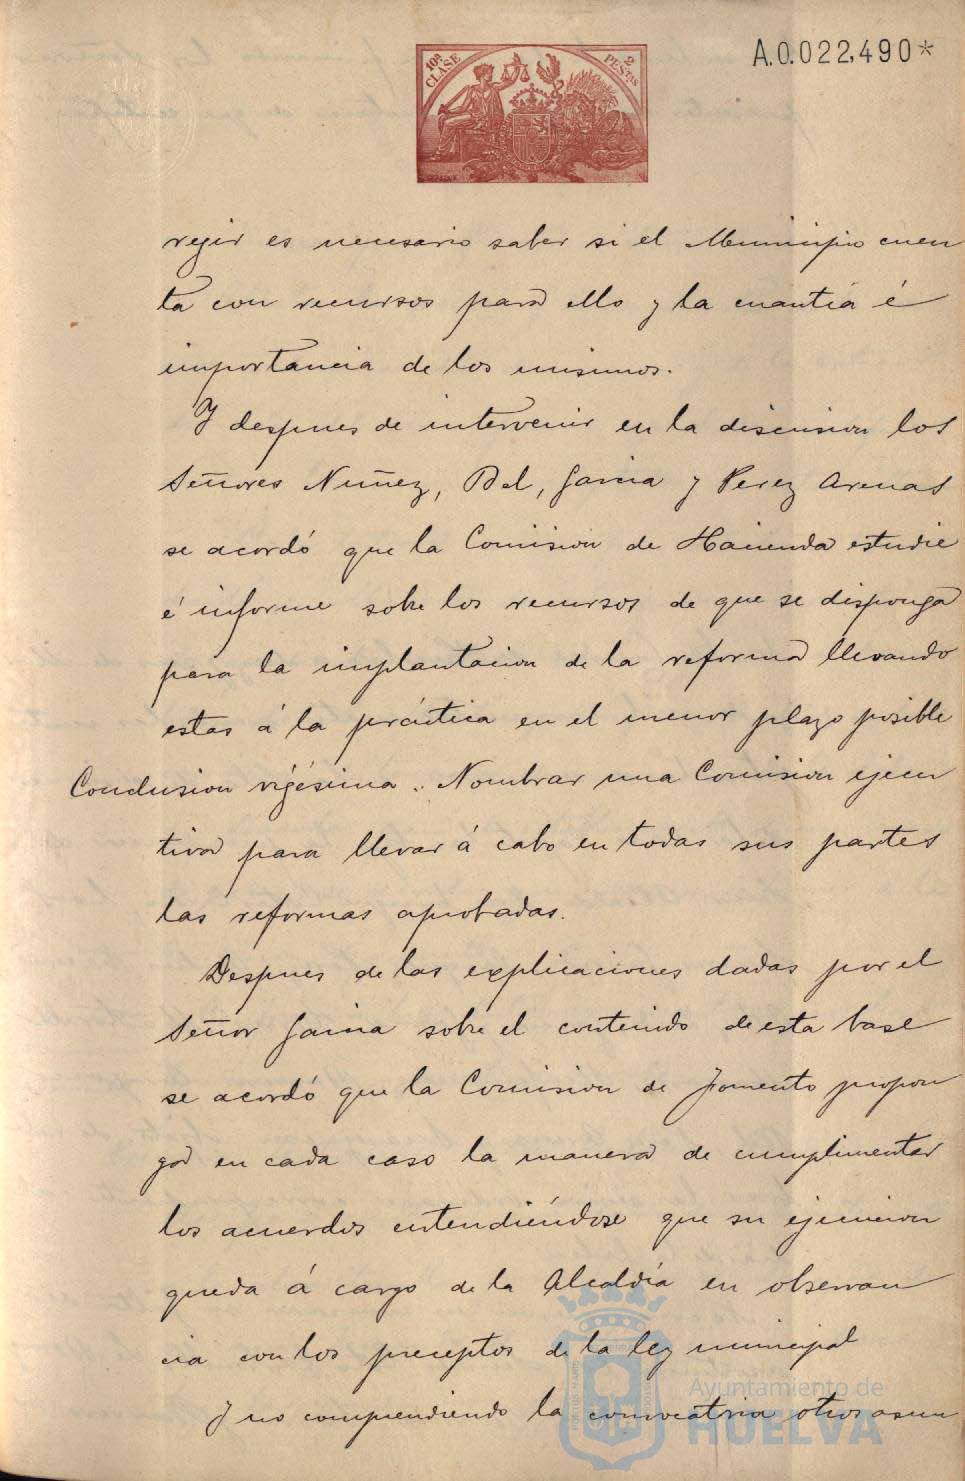 10ª CLASE 2 PESTAS
A.0.022,490*
regir es necesario saber si el Municipio cuen
ta con recursos para ello y la cuantia é
importancia de los mismos.
Y despues de intervenir en la discusion los
Señores Nuñez, Bel, Garcia y Perez Arenas
se acordó que la Comision de Hacienda estudie
é informe sobre los recursos de que se disponga
para la implantacion de la reforma llevando
estas á la práctica en el menor plazo posible
Conclusion vigésima.. Nombrar una Comision ejecu
tiva para llevar á cabo en todas sus partes
las reformas aprobadas.
Despues de las explicaciones dadas por el
Señor Garcia sobre el contenido de esta base
se acordó que la Comision de Fomento propon
ga en cada caso la manera de cumplimentar
los acuerdos entendiéndose que su ejecucion
queda á cargo de la Alcaldía en observan
cia con los preceptos de la ley municipal
Y no comprendiendo la convocatoria otros asun
Ayuntamiento de
HUELVA